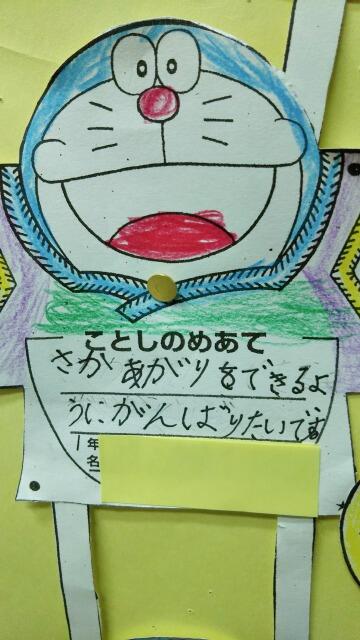 ことしのめあて
さかあがりをできるよ
うにがんばりたいです
1年
名